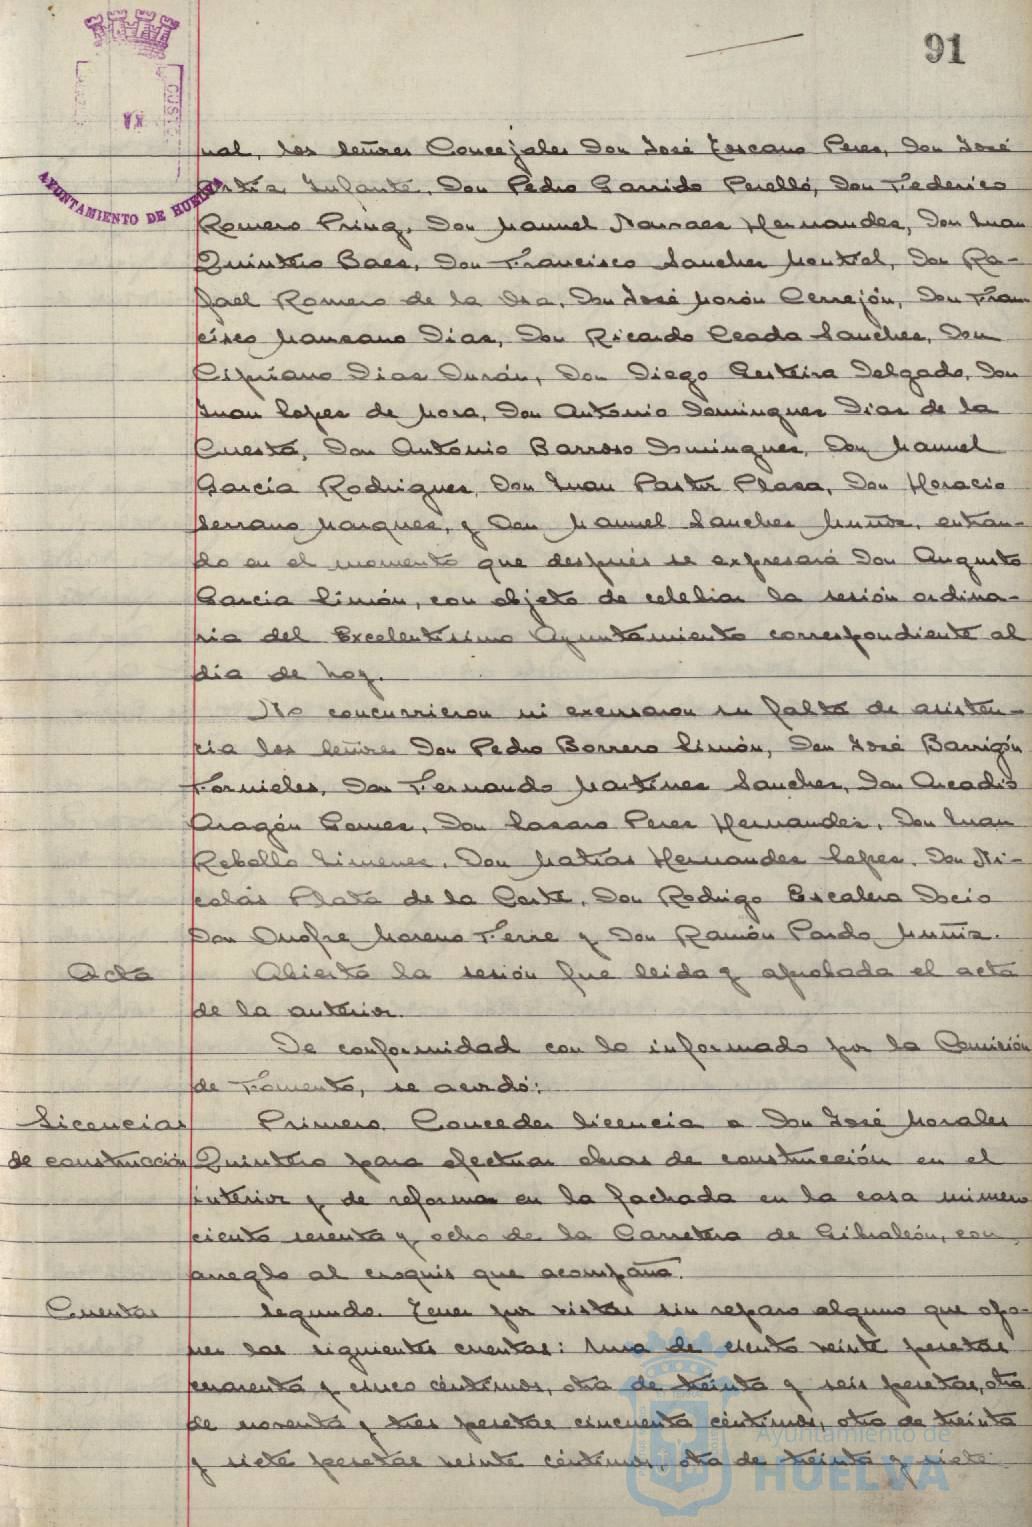 91
AYUNTAMIENTO DE HUELVA
nal, los señores Concejales Don José Toscano Perez, Don José
Ortiz Infante, Don Pedro Garrido Perelló, Don Federico
Romero Pring, Don Manuel Narvaez Hernandez, Don Juan
Quintero Baez, Don Francisco Sanchez Montiel, Don Ra-
fael Romero de la Osa, Don José Morón Cerrejón, Don Fran
cisco Manzano Diaz, Don Ricardo Ceada Sanchez, Don
Cipriano Diaz Durán, Don Diego Gesteira Delgado, Don
Juan Lopez de Mora, Don Antonio Dominguez Diaz de la
Cuesta, Don Antonio Barroso Dominguez, Don Manuel
Garcia Rodriguez, Don Juan Pastor Plaza, Don Horacio
Serrano Marquez, y Don Manuel Sanchez Muñoz, entran-
do en el momento que después se expresará Don Augusto
Garcia Limón, con objeto de celebrar la sesión ordina-
ria del Excelentisimo Ayuntamiento correspondiente al
dia de hoy.
No concurrieron ni excusaron su falta de asisten-
cia los señores Don Pedro Borrero Limón, Don José Barrigón
Fornieles, Don Fernando Martinez Sanchez, Don Arcadio
Aragón Gomez, Don Lazaro Perez Hernandez, Don Juan
Rebollo Jimenez, Don Matias Hernandez Lopez, Don Ni-
colás Plata de la Corte, Don Rodrigo Escalera Docio
Don Onofre Moreno Ferre y Don Ramón Pardo Muñiz.
Acta
Abierta la sesión fue leida y aprobada el acta
de la anterior.
De conformidad con lo informado por la Comisión
de Fomento, se acordó:
Licencias
de construcción
Primero. Conceder licencia a Don José Morales
Quintero para efectuar obras de construcción en el
interior y de reforma en la fachada en la casa número
ciento sesenta y ocho de la Carretera de Gibraleón, con
arreglo al croquis que acompaña.
Cuentas
Segundo. Tener por vistas sin reparo alguno que opo-
ner las siguientes cuentas: Una de ciento veinte pesetas
cuarenta y cinco céntimos, otra de treinta y seis pesetas, otra
de noventa y tres pesetas cincuenta céntimos, otra de treinta
y siete pesetas veinte céntimos, otra de treinta y siete
Ayuntamiento de
HUELVA